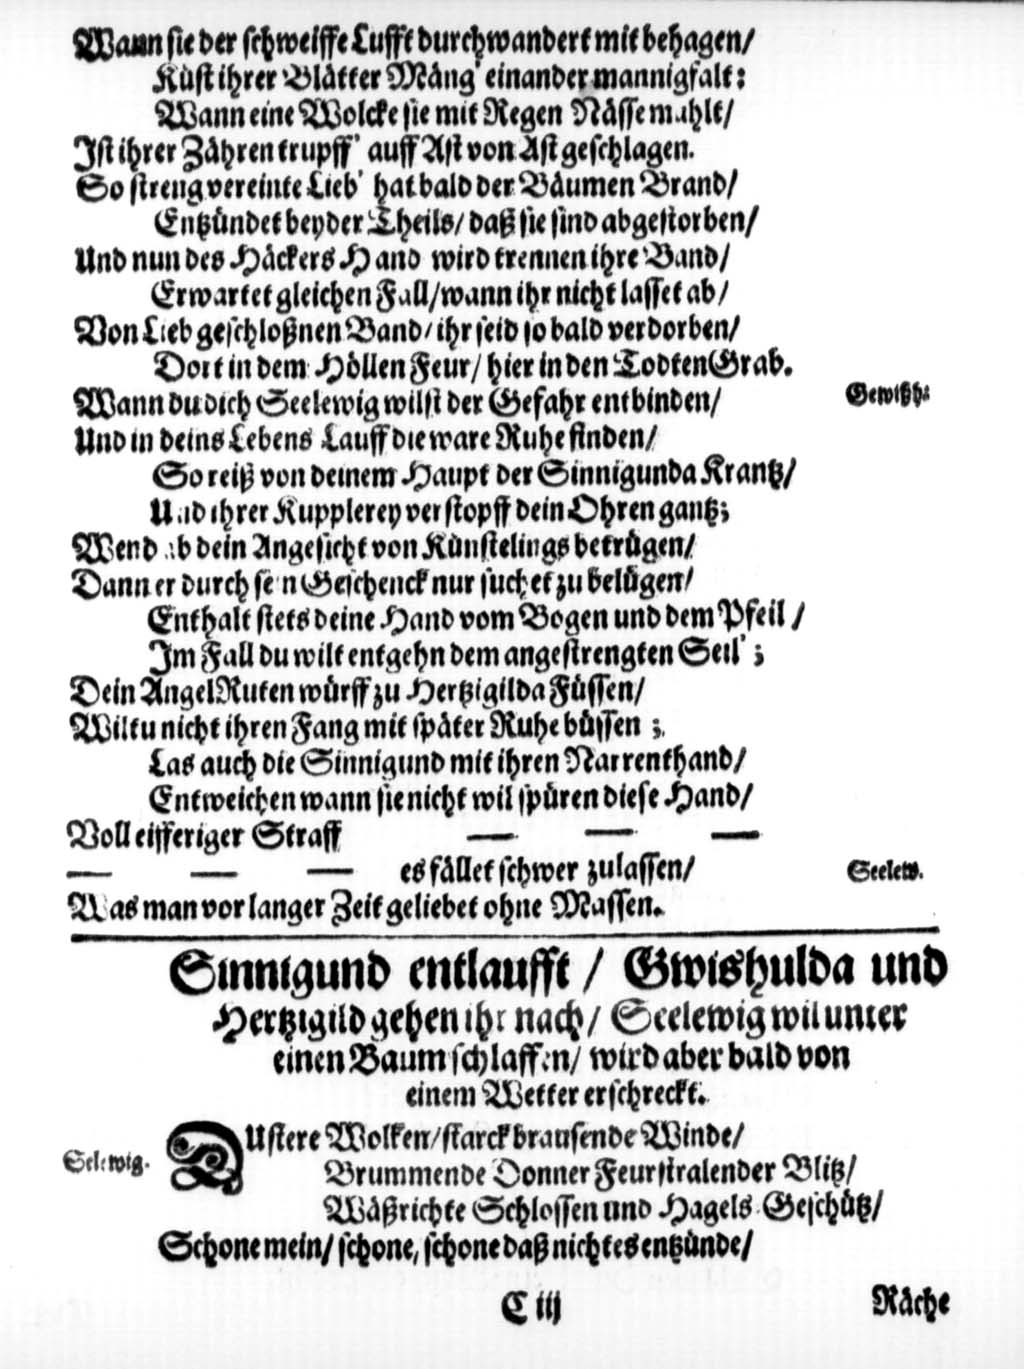 Wann sie der schweiffe Lufft durchwandert mit behagen/
Küst ihrer Blätter Mäng' einander mannigfalt:
Wann eine Wolcke sie mit Regen Nässe mahlt/
Ist ihrer Zähren trupff' auff Ast von Ast geschlagen.
So streng vereinte Lieb' hat bald der Bäumen Brand/
Entzündet beyder Theils/ daß sie sind abgestorben/
Und nun des Häckers Hand wird trennen ihre Band/
Erwartet gleichen Fall/ wann ihr nicht lasset ab/
Von Lieb geschloßnen Band/ ihr seid so bald verdorben/
Dort in dem Höllen Feur/ hier in den Todten Grab.
Wann du dich Seelewig wilst der Gefahr entbinden/
Gewißh:
Und in deins Lebens Lauff die ware Ruhe finden/
So reiß von deinem Haupt der Sinnigunda Krantz/
Und ihrer Kupplerey verstopff dein Ohren gantz;
Wend ab dein Angesicht von Künstelings betrügen/
Dann er durch sein Geschenck nur suchet zu belügen/
Enthalt stets deine Hand vom Bogen und dem Pfeil/
Im Fall du wilt entgehn dem angestrengten Seil';
Dein Angel Ruten würff zu Hertzigilda Füssen/
Wiltu nicht ihren Fang mit später Ruhe büssen;
Las auch die Sinnigund mit ihren Narrenthand/
Entweichen wann sie nicht wil spüren diese Hand/
Voll eifferiger Straff — — —
— — — es fället schwer zulassen/
Seelew.
Was man vor langer Zeit geliebet ohne Massen.
Sinnigund entlaufft/ Gwishulda und
Hertzigild gehen ihr nach/ Seelewig wil unter
einen Baum schlaffen/ wird aber bald von
einem Wetter erschreckt.
Selewig.
DUstere Wolken/ starck brausende Winde/
Brummende Donner Feurstralender Blitz/
Wäßrichte Schlossen und Hagels Geschütz/
Schone mein/ schone, schone daß nicht es entzünde/
C iij
Räche